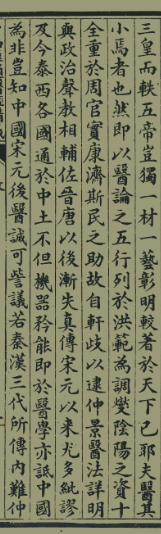 三皇而軼五帝豈獨一材一藝彰明較著於天下已耶夫醫其
小焉者也然即以醫論之五行列於洪範為調燮陰陽之資十
全重於周官實康濟斯民之助故自軒歧以逮仲景醫法詳明
與政治聲教相輔佐晉唐以後漸失真傳宋元以來尤多紕謬
及今泰西各國通於中土不但機器矜能即於醫學亦詆中國
為非豈知中國宋元後醫誠可訾議若秦漢三代所傳內難仲